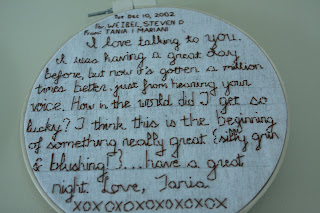 Tue Dec 10, 2002
To: WEIBEL, STEVEN D
From: TANIA I MARIANI
I love talking to you.
it was having a great day
before, but now it's gotten a million
times better, just from hearing your
voice. How in the world did I get so
lucky? I think this is the beginning
of something really great {silly grin
& blushing!}...have a great
night. Love, Tania
XOXOXOXOXOXOX